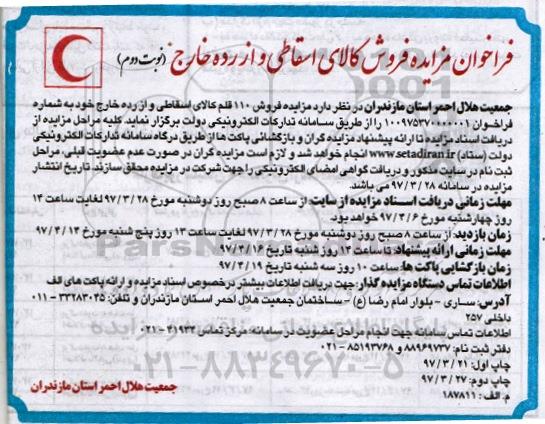 فراخوان مزایده فروش کالای اسقاطی و از رده خارج (نوبت دوم)
جمعیت هلال احمر استان مازندران در نظر دارد مزایده فروش ۱۱۰ قلم کالای اسقاطی و از رده خارج خود به شماره
فراخوان ۱۰۰۹۷۵۳۷۰۰۰۰۰۰۱ را از طریق سامانه تدارکات الکترونیکی دولت برگزار نماید. کلیه مراحل مزایده از
دریافت اسناد مزایده تا ارائه پیشنهاد مزایده گران و بازگشائی پاکت ها از طریق درگاه سامانه تدارکات الکترونیکی
دولت (ستاد) www.setadiran.ir انجام خواهد شد و لازم است مزایده گران در صورت عدم عضویت قبلی، مراحل
ثبت نام در سایت مذکور و دریافت گواهی امضای الکترونیکی را جهت شرکت در مزایده محقق سازند. تاریخ انتشار
مزایده در سامانه ۹۷/۳/۲۸ می باشد.
مهلت زمانی دریافت اسناد مزایده از سایت: از ساعت ۸ صبح روز دوشنبه مورخ ۹۷/۳/۲۸ لغایت ساعت ۱۴
روز چهارشنبه مورخ ۹۷/۴/۶ خواهد بود.
زمان بازدید: از ساعت ۸ صبح روز دوشنبه مورخ ۹۷/۳/۲۸ لغایت ساعت ۱۳ روز پنج شنبه مورخ ۹۷/۴/۱۴
مهلت زمانی ارائه پیشنهاد: تا ساعت ۱۳ روز شنبه تاریخ ۹۷/۴/۱۶
زمان بازگشایی پاکت ها: ساعت ۱۰ روز سه شنبه تاریخ ۹۷/۴/۱۹
اطلاعات تماس دستگاه مزایده گذار: جهت دریافت اطلاعات بیشتر در خصوص اسناد مزایده و ارائه پاکت های الف
آدرس: ساری - بلوار امام رضا (ع) - ساختمان جمعیت هلال احمر استان مازندران و تلفن: ۳۳۲۸۳۰۴۵-۰۱۱
داخلی ۲۵۷
اطلاعات تماس سامانه جهت انجام مراحل عضویت در سامانه: مرکز تماس ۴۱۹۳۴-۰۲۱
دفتر ثبت نام: ۸۸۹۶۹۷۳۷ و ۸۵۱۹۳۷۶۸-۰۲۱
چاپ اول: ۹۷/۳/۲۱
چاپ دوم: ۹۷/۳/۲۷
م. الف: ۱۸۷۸۱۱
جمعیت هلال احمر استان مازندران
۰۲۱-۸۸۳۴۹۶۷۰-۵